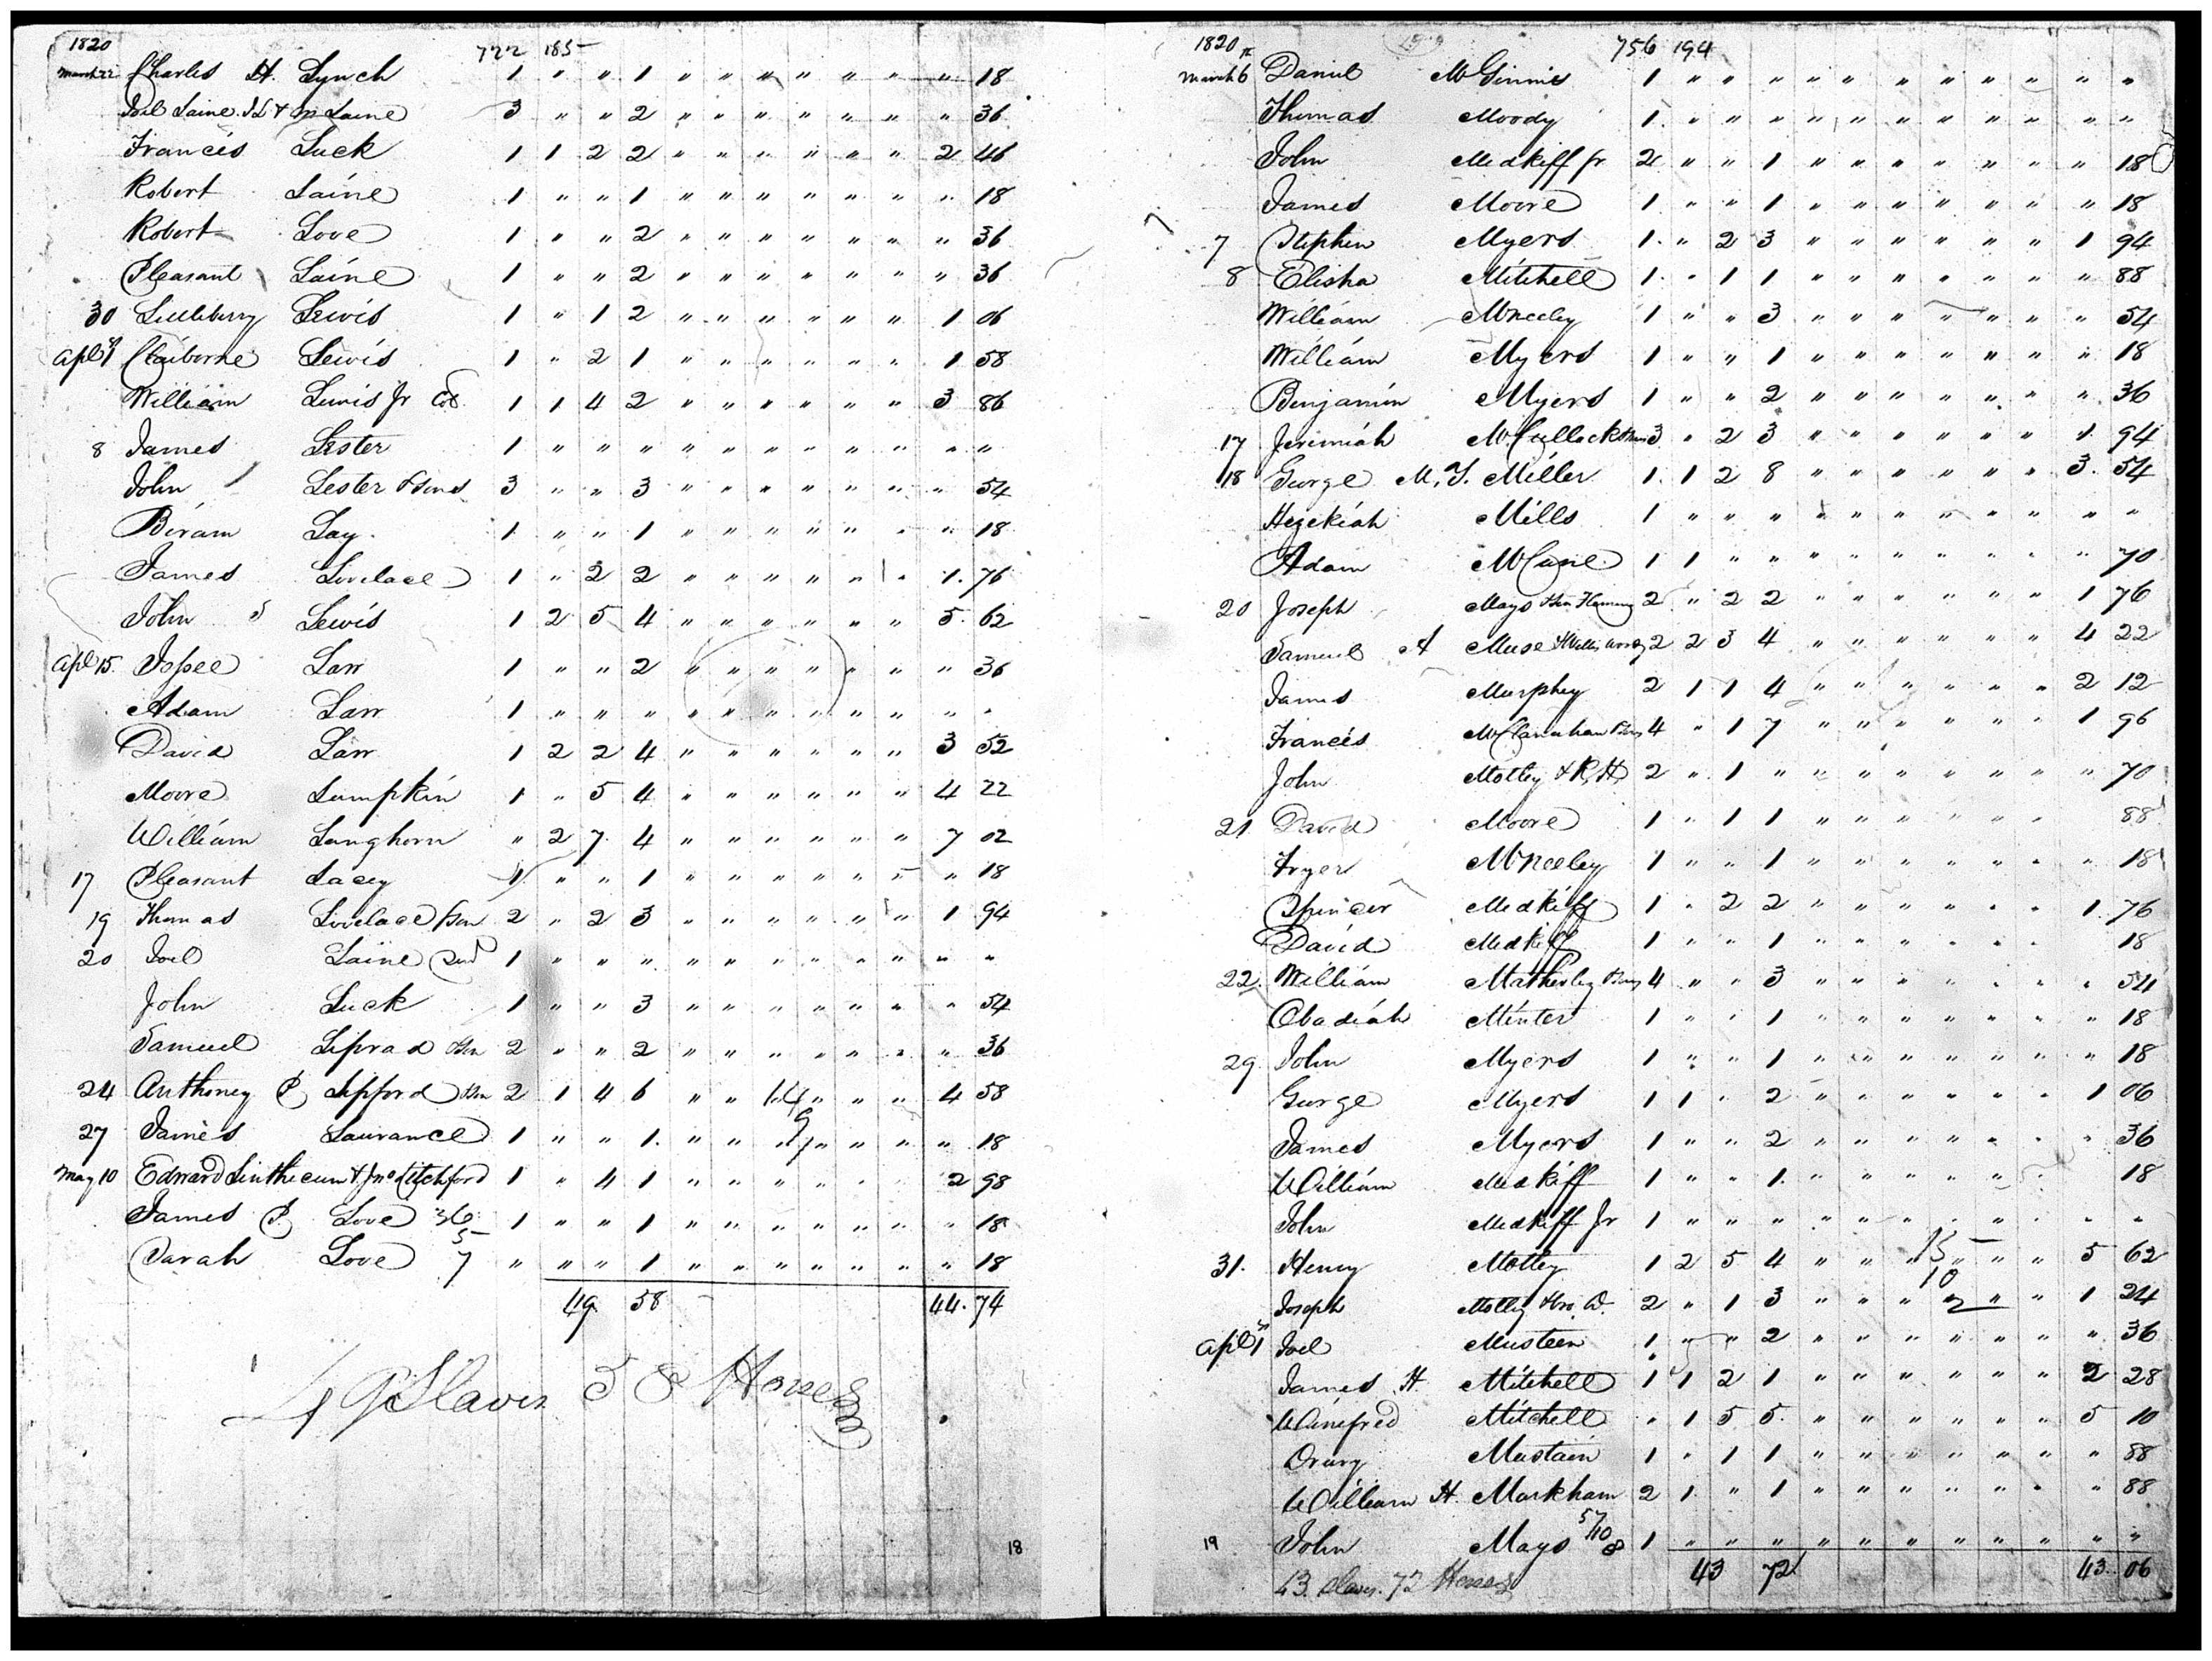 1820 722 185
March 22 Charles H. Lynch 1 " " 1 " " " " " " " 18
Joel Laine J L & M Laine 3 " " 2 " " " " " " " 36
Francis Luck 1 1 2 2 " " " " " " 2 46
Robert Laine 1 " " 1 " " " " " " " 18
Robert Love 1 " " 2 " " " " " " " 36
Pleasant Laine 1 " " 2 " " " " " " " 36
30 Littleberry Lewis 1 " 1 2 " " " " " " 1 06
Apl 1 Claiborne Lewis 1 " 2 1 " " " " " " 1 58
William Lewis Jr Col 1 1 4 2 " " " " " " 3 86
8 James Lester 1 " " " " " " " " " " "
John Lester & Sons 3 " " 3 " " " " " " " 54
Biram Lay 1 " " 1 " " " " " " " 18
James Lovelace 1 " 2 2 " " " " " " 1. 76
John Lewis 1 2 5 4 " " " " " " 5. 62
Apl 15. Jessee Law 1 " " 2 " " " " " " " 36
Adam Law 1 " " " " " " " " " " "
David Law 1 2 2 4 " " " " " " 3 52
Moore Lumpkin 1 " 5 4 " " " " " " 4 22
William Langhorn " 2 7 4 " " " " " " 7 02
17 Pleasant Lacey 1 " " 1 " " " " " " " 18
19 Thomas Lovelace & Son 2 " 2 3 " " " " " " 1 94
20 Joel Laine 1 " " " " " " " " " " "
John Luck 1 " " 3 " " " " " " " 54
Samuel Liprad & Son 2 " " 2 " " " " " " " 36
24 Anthoney P Lipford & Son 2 1 4 6 " " 14 " " " 4 58
27 James Laurance 1 " " 1. " " 9 " " " " 18
May 10 Edward Linthecum & Jno Litchford 1 " 4 1 " " " " " " 2 98
James P Love 36 1 " " 1 " " " " " " " 18
5
Sarah Love 7 " " " 1 " " " " " " " 18
49 58 44.74
49 Slaves 58 Horses
18
1820 756 194
March 6 Daniel McGinnis 1 " " " " " " " " " " "
Thomas Moody 1 " " " " " " " " " " "
John Medkiff Sr 2 " " 1 " " " " " " " 18
James Moore 1 " " 1 " " " " " " " 18
7 Stephen Myers 1 " 2 3 " " " " " " 1 94
8 Elisha Mitchell 1 " 1 1 " " " " " " " 88
William McNeeley 1 " " 3 " " " " " " " 54
William Myers 1 " " 1 " " " " " " " 18
Benjamin Myers 1 " " 2 " " " " " " " 36
17 Jerimiah McCullock & Sons 3 " 2 3 " " " " " " 1 94
18 George M. T. Miller 1 1 2 8 " " " " " " 3. 54
Hezekiah Mills 1 " " " " " " " " " " "
Adam McCune 1 1 " " " " " " " " " 70
20 Joseph Mays & Son 2 " 2 2 " " " " " " 1 76
Samuel A Muse 2 2 3 4 " " " " " " 4 22
James Murphey 2 1 1 4 " " " " " " 2 12
Francis McClanahan & Sons 4 " 1 7 " " " " " " 1 96
John Motley & R, H, 2 " 1 " " " " " " " " 70
21 David Moore 1 " 1 1 " " " " " " 88
Fryer McNeeley 1 " " 1 " " " " " " " 18
Spencer Medkiff 1 " 2 2 " " " " " " 1. 76
David Medkiff 1 " " 1 " " " " " " 18
22. William Matherley & Sons 4 " " 3 " " " " " " " 54
Obadiah Minter 1 " " 1 " " " " " " " 18
29 John Myers 1 " " 1 " " " " " " " 18
George Myers 1 1 " 2 " " " " " " 1 06
James Myers 1 " " 2 " " " " " " " 36
William Medkiff 1 " " 1. " " " " " " 18
John Medkiff Jr 1 " " " " " " " " " " "
31. Henry Motley 1 2 5 4 " " 15 " " " 5 62
10
Joseph Motley 2 " 1 3 " " " 2 " " 1 24
Apl 1 Joel Musteen 1 " " 2 " " " " " " " 36
James H. Mitchell 1 1 2 1 " " " " " " 2 28
Winefred Mitchell " 1 5 5. " " " " " " 5 10
Drury Mustain 1 " 1 1 " " " " " " " 88
William H. Markham 2 1. " 1 " " " " " " " 88
19 John Mays 1 " " " " " " " " " " "
43 72 43. 06
43. Slaves. 72 Horses